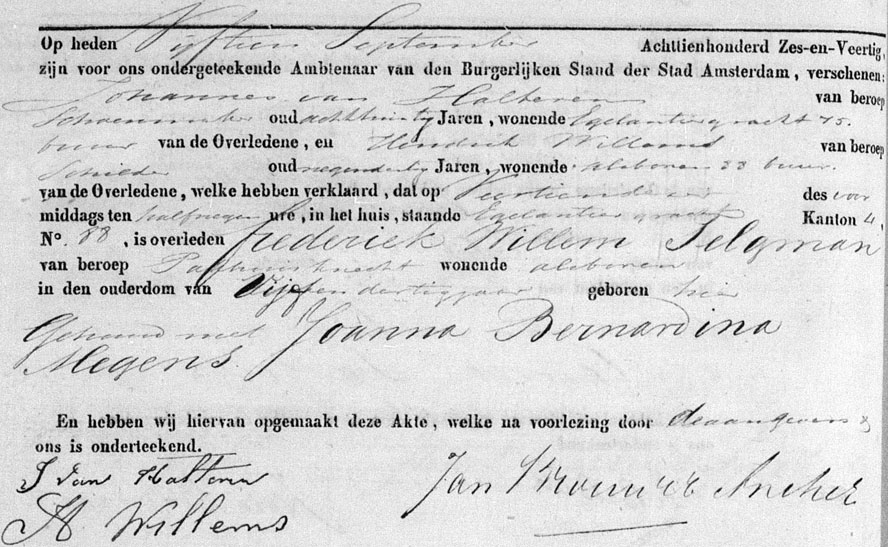 Op heden Vijftien September Achttienhonderd Zes-en-Veertig,
zijn voor ons ondergeteekende Ambtenaar van den Burgerlijken Stand der Stad Amsterdam, verschenen:
Johannes van Halteren van beroep
Schoenmaker oud achtthirty Jaren, wonende Egelantiersgracht 75.
buur van de Overledene, en Hendrik Willems van beroep
Schilder oud negendertig Jaren, wonende alsboven 33 buur
van de Overledene, welke hebben verklaard, dat op Veertien dezer des voor
middags ten half negen ure, in het huis, staande Egelantiersgracht Kanton 4,
No. 88, is overleden Frederick Willem Telgman
van beroep Pakhuisknecht wonende alsboven
in den ouderdom van Vijf en dertig jaar geboren hier
Gehuwd met Joanna Bernardina
Megens.
En hebben wij hiervan opgemaakt deze Akte, welke na voorlezing door de aangevers &
ons is onderteekend.
J van Halteren
Jan Brouwer Ancher
H Willems